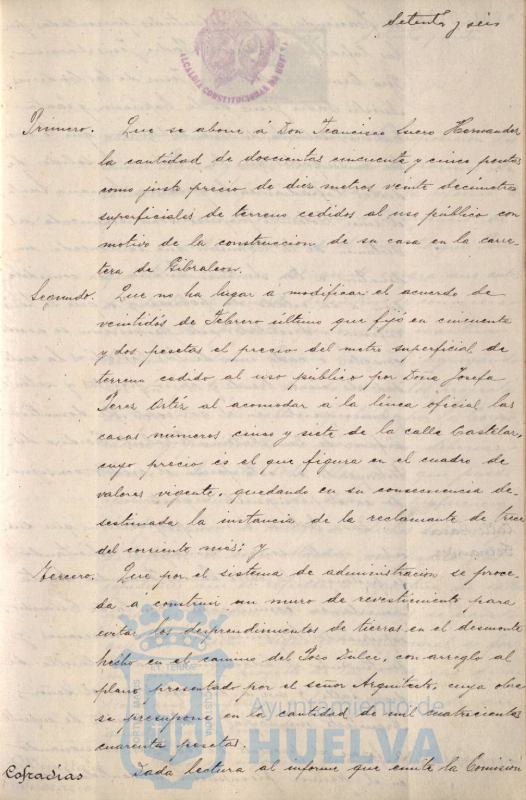 Setenta y seis
ALCALDIA CONSTITUCIONAL DE HUELVA
Primero. Que se abone á Don Francisco Suero Hernandez
la cantidad de doscientas cincuenta y cinco pesetas
como justo precio de diez metros veinte decímetros
superficiales de terreno cedidos al uso público con
motivo de la construccion de su casa en la carre-
tera de Gibraleon.
Segundo. Que no ha lugar a modificar el acuerdo de
veintidós de Febrero último que fijó en cincuenta
y dos pesetas el precio del metro superficial de
terreno cedido al uso público por Doña Josefa
Perez Ortiz al acomodar á la línea oficial las
casas números cinco y siete de la calle Castelar,
cuyo precio és el que figura en el cuadro de
valores vigente, quedando en su consecuencia de-
sestimada la instancia de la reclamante de trece
del corriente mes; y
Tercero. Que por el sistema de administración se proce-
da a construir un muro de revestimiento para
evitar los desprendimientos de tierras en el desmonte
hecho en el camino del Pozo Dulce, con arreglo al
plano presentado por el señor Arquitecto, cuya obra
se presupone en la cantidad de mil cuatrocientas
cuarenta pesetas.
Ayuntamiento de
HUELVA
Cofradias Dada lectura al informe que emite la Comisión